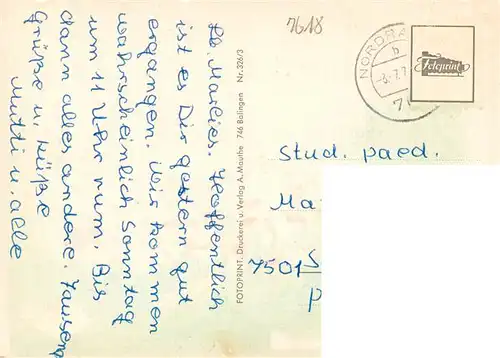 7618
Lb. Marlies. Hoffentlich
ist es Dir gestern gut
ergangen. Wir kommen
wahrscheinlich Sonntag
um 11 Uhr rum. Bis
dann alles andere. Tausend
Grüße u. Küße
Mutti u. alle
FOTOPRINT. Druckerei u. Verlag A. Mauthe 746 Balingen Nr. 326/3
NORDRA
h
-8.-7.7
71
Fotoprint
stud. paed.
Ma
7501 S
P